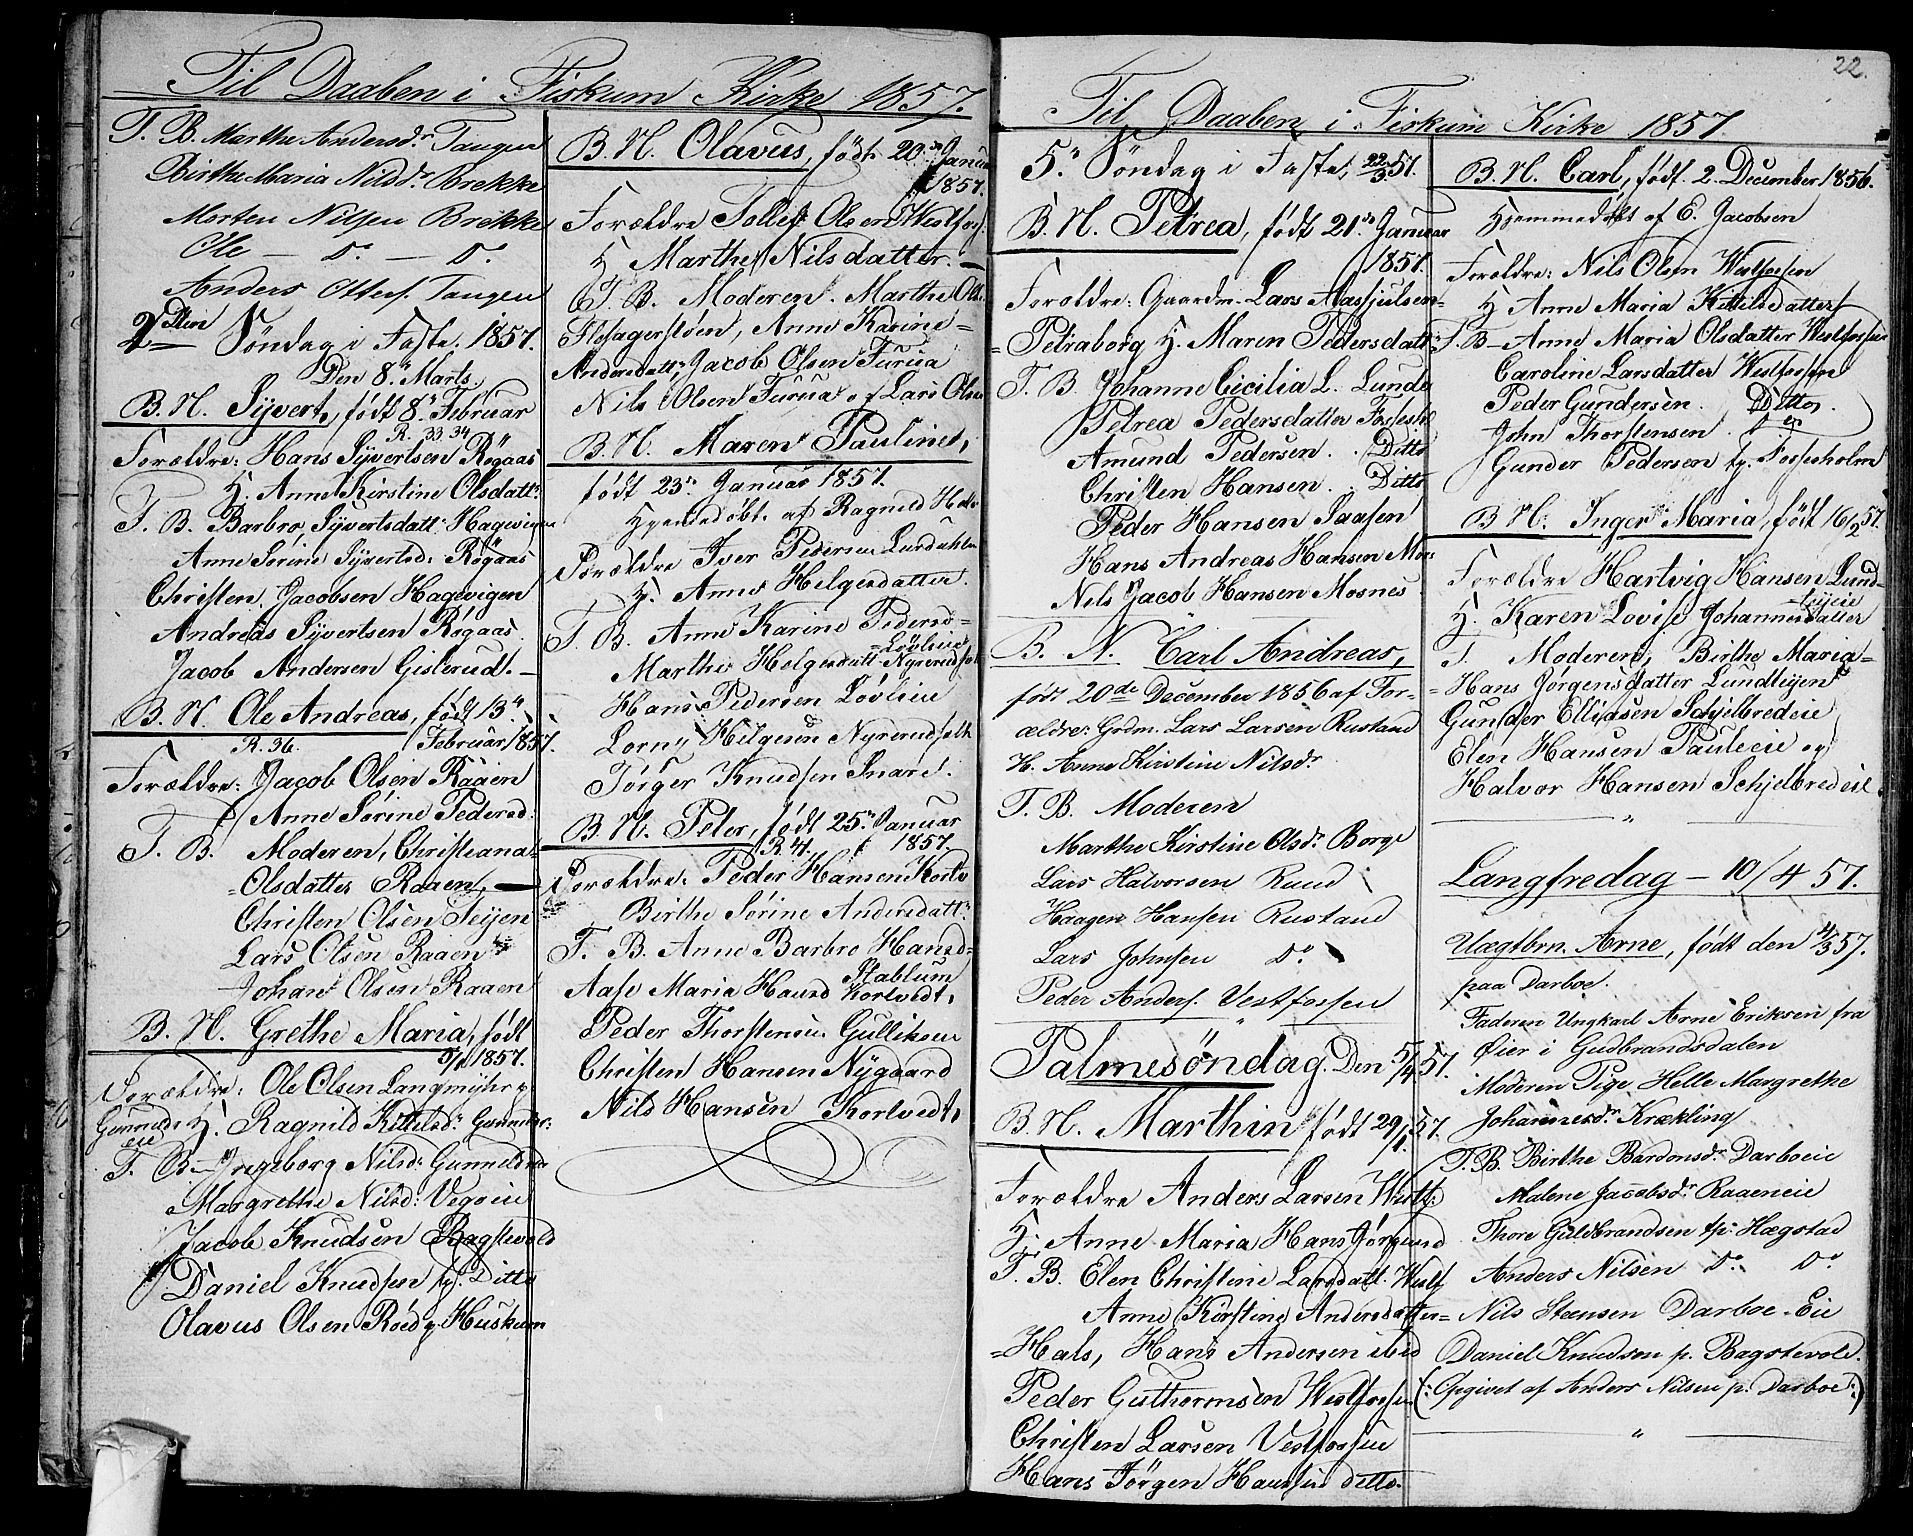 Til Daaben i Fiskum Kirke 1857.
T. B. Marthe Andersdr. Tangen
Birthe Maria Nilsdr. Brekke
Morten Nilsen Brekke
Ole — Do. — Do.
Anders Otters. Tangen
2den Søndag i Faste. 1857.
Den 8de Marts.
B. N. Syvert, født 8de Februar
R. 33 34
Forældre: Hans Syvertsen Røgaas
H. Anne Kirstine Olsdatt:
T. B. Barbro Syvertsdatt: Hagevigen
Anne Sørine Syvertsd: Røgaas
Christen Jacobsen Hagevigen
Andreas Syvertsen Røgaas.
Jacob Andersen Gislerud. —
B. N. Ole Andreas, født 13de
R. 36. Februar 1857.
Forældre: Jacob Olsen Raaen
Anne Sørine Pedersd:
T. B. Moderen, Christiana
Olsdatter Raaen, —
Christen Olsen Teijen
Lars Olsen Raaen
Johan Olsen Raaen
B. N. Grethe Maria, født
5/1 1857.
Forældre: Ole Olsen Langmyhr
Gunnilds H. Ragnild Kittelsd:
eie
T. B. Ingeborg Nilsd:
Margrethe Nilsd:
Jacob Knudsen Bagstevold
Daniel Knudsen Ditto
Olavus Olsen Røed Huskum
B. N. Olavus, født 20de Januar
1857.
Forældre Tollef Olsen Westfoss:
H Marthe Nilsdatter. —
T. B. Moderen. Marthe
Flesagerstøen, Anne Karine
Andersdatt; Jacob Olsen Furua
Nils Olsen Furua og Lars Olsen
B. N. Maren Pauline,
født 23de Januar 1857.
Hjemmedøbt af Ragnild
Forældre Iver Pedersen Lurdahlen
H. Anne Helgesdatter.
T. B. Anne Karine Pedersd=
Løvleie
Marthe Helgesdatt
Hans Pedersen Løvleie
Helgesen
Tørger Knudsen Snare.
B. N. Peter, født 25de Januar
R. 41. 1857.
Forældre: Peder Hansen Kortv
Birthe Sørine Andersdatt:
T. B. Anne Barbro Hansd=
Stablum
Aase Maria Hansd Kortvedt,
Peder Thorstensen Gulliksen
Christen Hansen Nygaard
Nils Hansen Kortvedt,
22.
Til Daaben i Fiskum Kirke 1857
5te Søndag i Faste, 22/3 57.
B. N. Petrea, født 21de Januar
1857.
Forældre: Gaardm. Lars Aasjulsen
Petraborg H. Maren Pedersdatt:
T. B. Johanne Cicilia L. Lunde
Petrea Pedersdatter Fossesh
Amund Pedersen. Ditto
Christen Hansen. Ditto
Peder Hansen Saasen
Hans Andreas Hansen Mos:
Nils Jacob Hansen Mosnes
B. N. Carl Andreas,
født 20de December 1856 af For-
ældre: Grdm. Lars Larsen Rustand
H. Anne Kirstine Nilsdr.
T. B. Moderen
Marthe Kirstine Olsdr. Borge
Lars Halvorsen Ruud
Haagen Hansen Rustand
Lars Johnsen Do
Peder Anders. Vestfossen
Palmesøndag. Den 5/4 57.
B. N. Marthin født 29/1 57.
Forældre Anders Larsen Westf:
H. Anne Maria Hans Jørgensd
T. B. Elen Christine Larsdatt. Westf
Anne Kirstine Andersdatter=
=Hals, Hans Andersen ibid
Peder Guthormsen Westfossen
Christen Larsen Vestfossen
Hans Jørgen Hansen ditto.
B. N. Carl, født 2. December 1856.
Hjemmedøbt af E. Jacobsen
Forældre: Nils Olsen Westfossen
H Anne Maria Kittilsdatter
T. B— Anne Maria Olsdatter Westfossen
Caroline Larsdatter Westfossen
Peder Gundersen. Ditto.
John Thorstensen. Do
Gunder Pedersen Fossesholm
B. N. Inger Maria, født 16/2 57.
Forældre Hartvig Hansen Lund-
teijeie
H. Karen Lovise Johannesdatter
T. Moderen, Birthe Maria=
=Hans Jørgensdatter Lundteijen
Gunder Elliasen Schjelbredeie
Elen Hansen Pauleeie og
Halvor Hansen Schjelbredeie.
Langfredag — 10/4 57.
Uægtbrn. Arne, født den 4/3 57.
paa Darboe.
Faderen Ungkarl Arne Eriksen fra
Øier i Gudbrandsdalen
Moderen Pige Helle Margrethe
Johannesdr. Krækling
T. B. Birthe Bardonsdr. Darboeie
Malene Jacobsdr. Raaeneie
Thore Guldbrandsen Hægstad
Anders Nilsen Do. Do
Nils Steensen Darboe-Eie
Daniel Knudsen p. Bagstevold.
(: Opgivet af Anders Nilsen p. Darboe :)